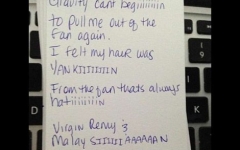 Gravity cant begiiiiiiin
to pull me out of the
fan again.
I felt my hair was
YANKIIIIIIIN
From the fan thats always
hatiiiiiiiin
Virgin Remy :3
Malay SIIIIIIAAAAAAN